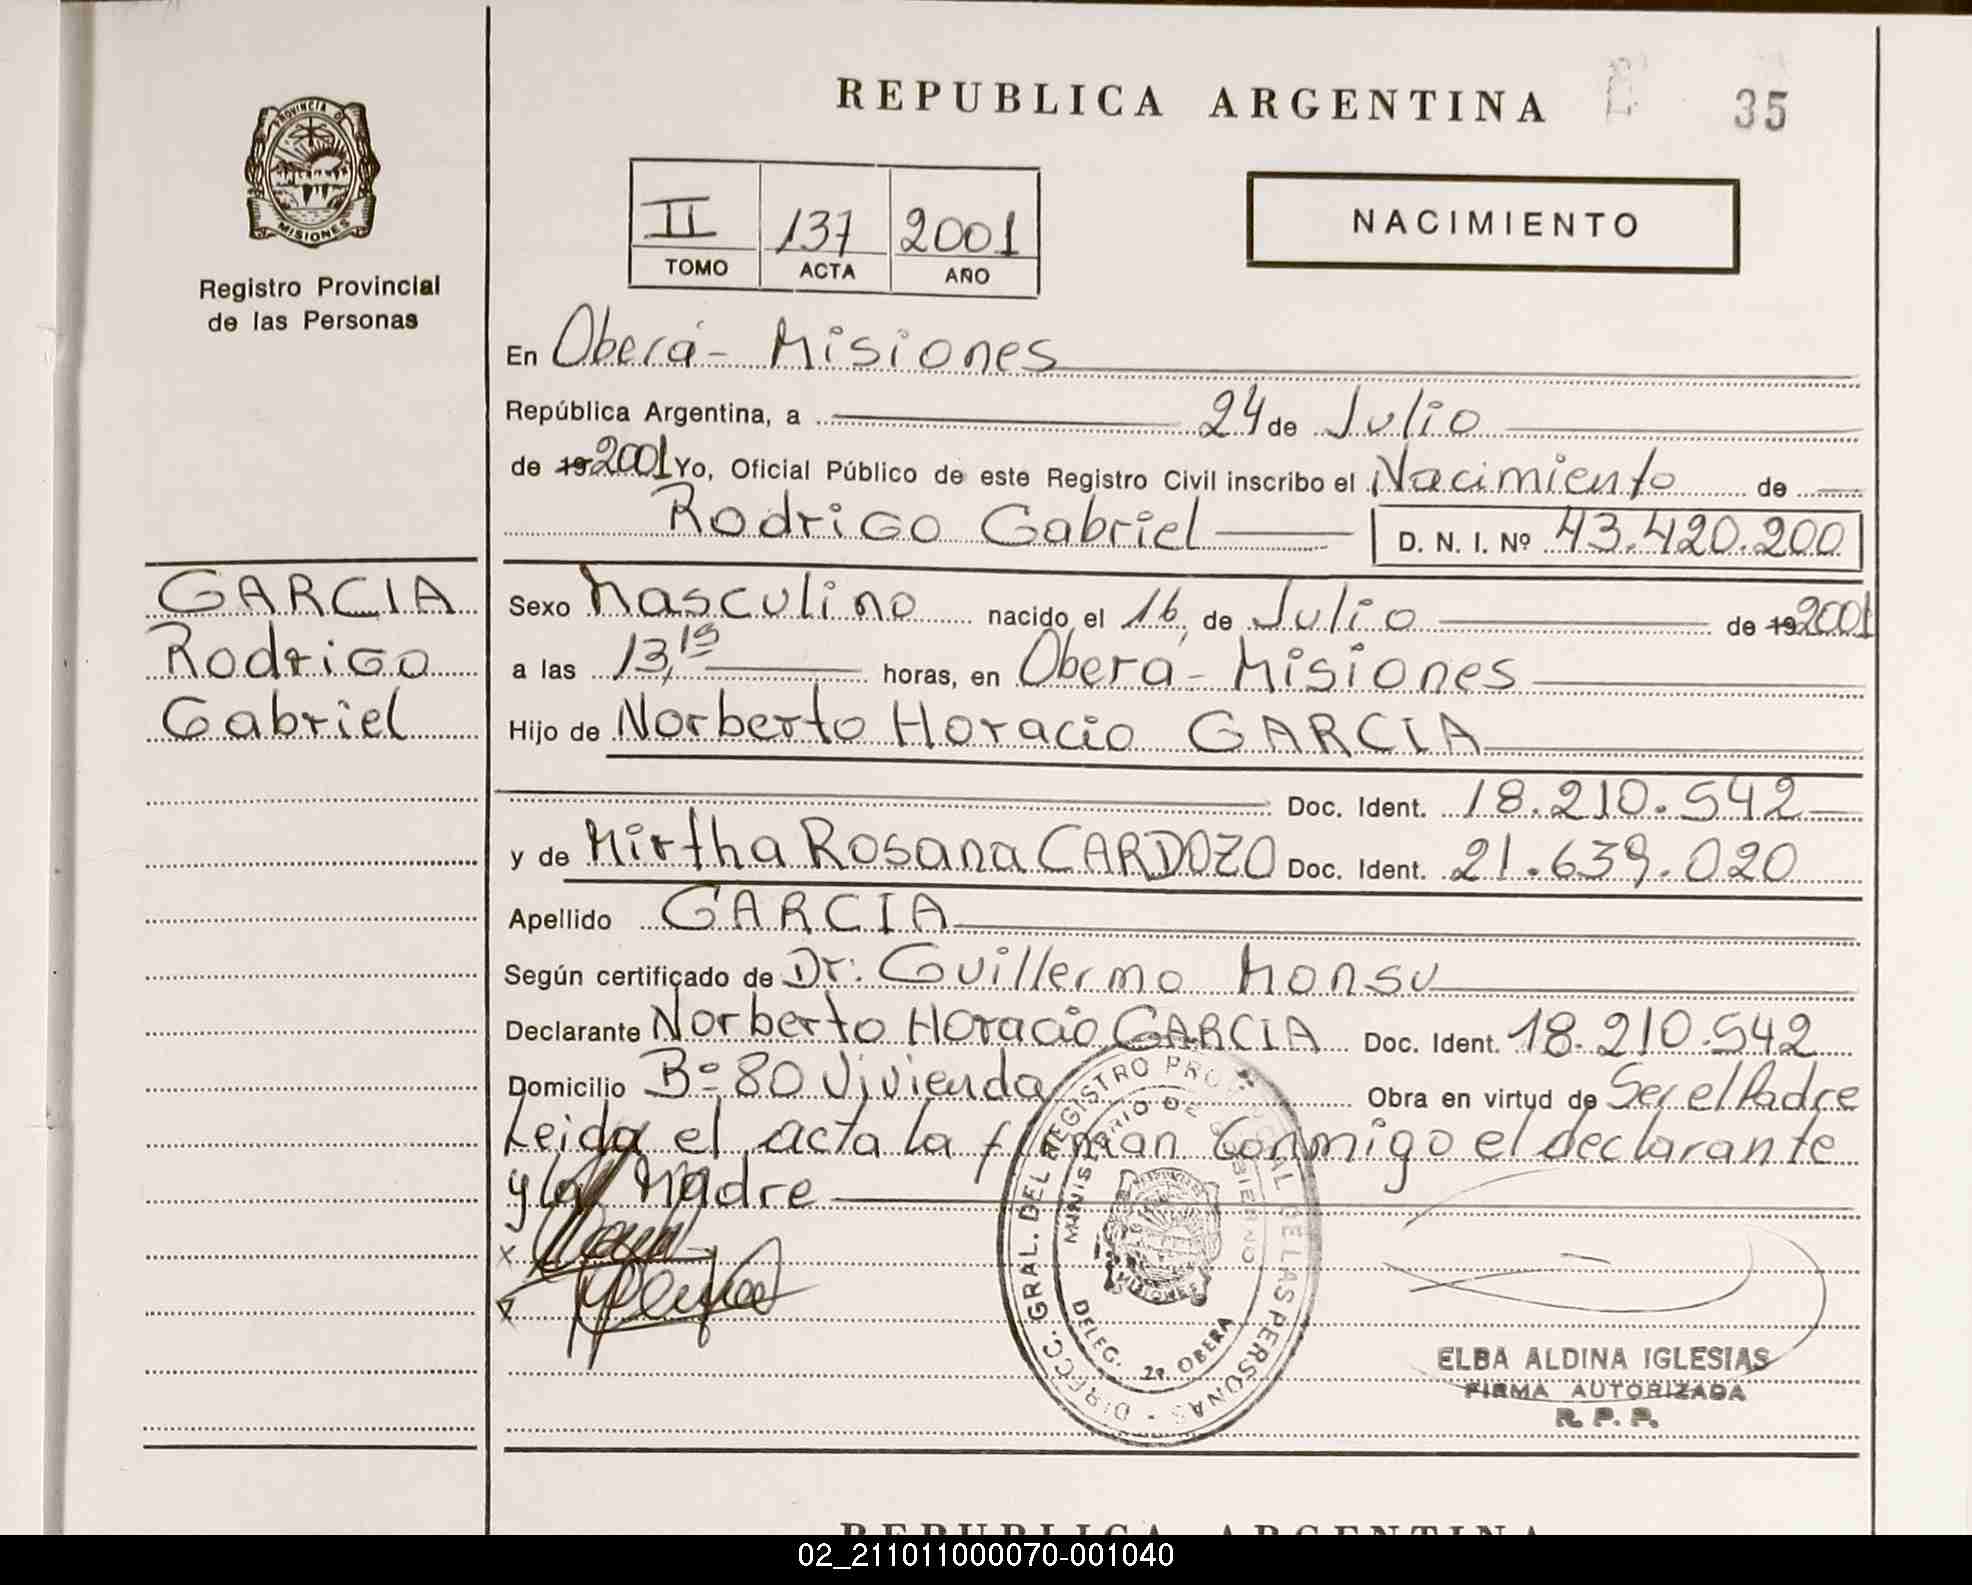 REPUBLICA ARGENTINA
35
PROVINCIA D
MISIONES
Registro Provincial
de las Personas
II 137 2001
TOMO ACTA AÑO
NACIMIENTO
En Oberá - Misiones
República Argentina, a 24 de Julio
de 19 2001 Yo, Oficial Público de este Registro Civil inscribo el Nacimiento de
Rodrigo Gabriel D. N. I. Nº 43.420.200
GARCIA
Rodrigo
Gabriel
Sexo Masculino nacido el 16 de Julio de 19 2001
a las 13,15 horas, en Oberá - Misiones
Hijo de Norberto Horacio GARCIA
Doc. Ident. 18.210.542
y de Mirtha Rosana CARDOZO Doc. Ident. 21.639.020
Apellido GARCIA
Según certificado de Dr: Guillermo Monsu
Declarante Norberto Horacio GARCIA Doc. Ident. 18.210.542
Domicilio Bº 80 Vivienda Obra en virtud de Ser el Padre
Leida el acta la firman conmigo el declarante
y la Madre
DIRECC. GRAL. DEL REGISTRO PROVINCIAL DE LAS PERSONAS
MINISTERIO DE GOBIERNO
MISIONES
DELEG. 2ª OBERA
ELBA ALDINA IGLESIAS
FIRMA AUTORIZADA
R. P. P.
REPUBLICA ARGENTINA
02_211011000070-001040